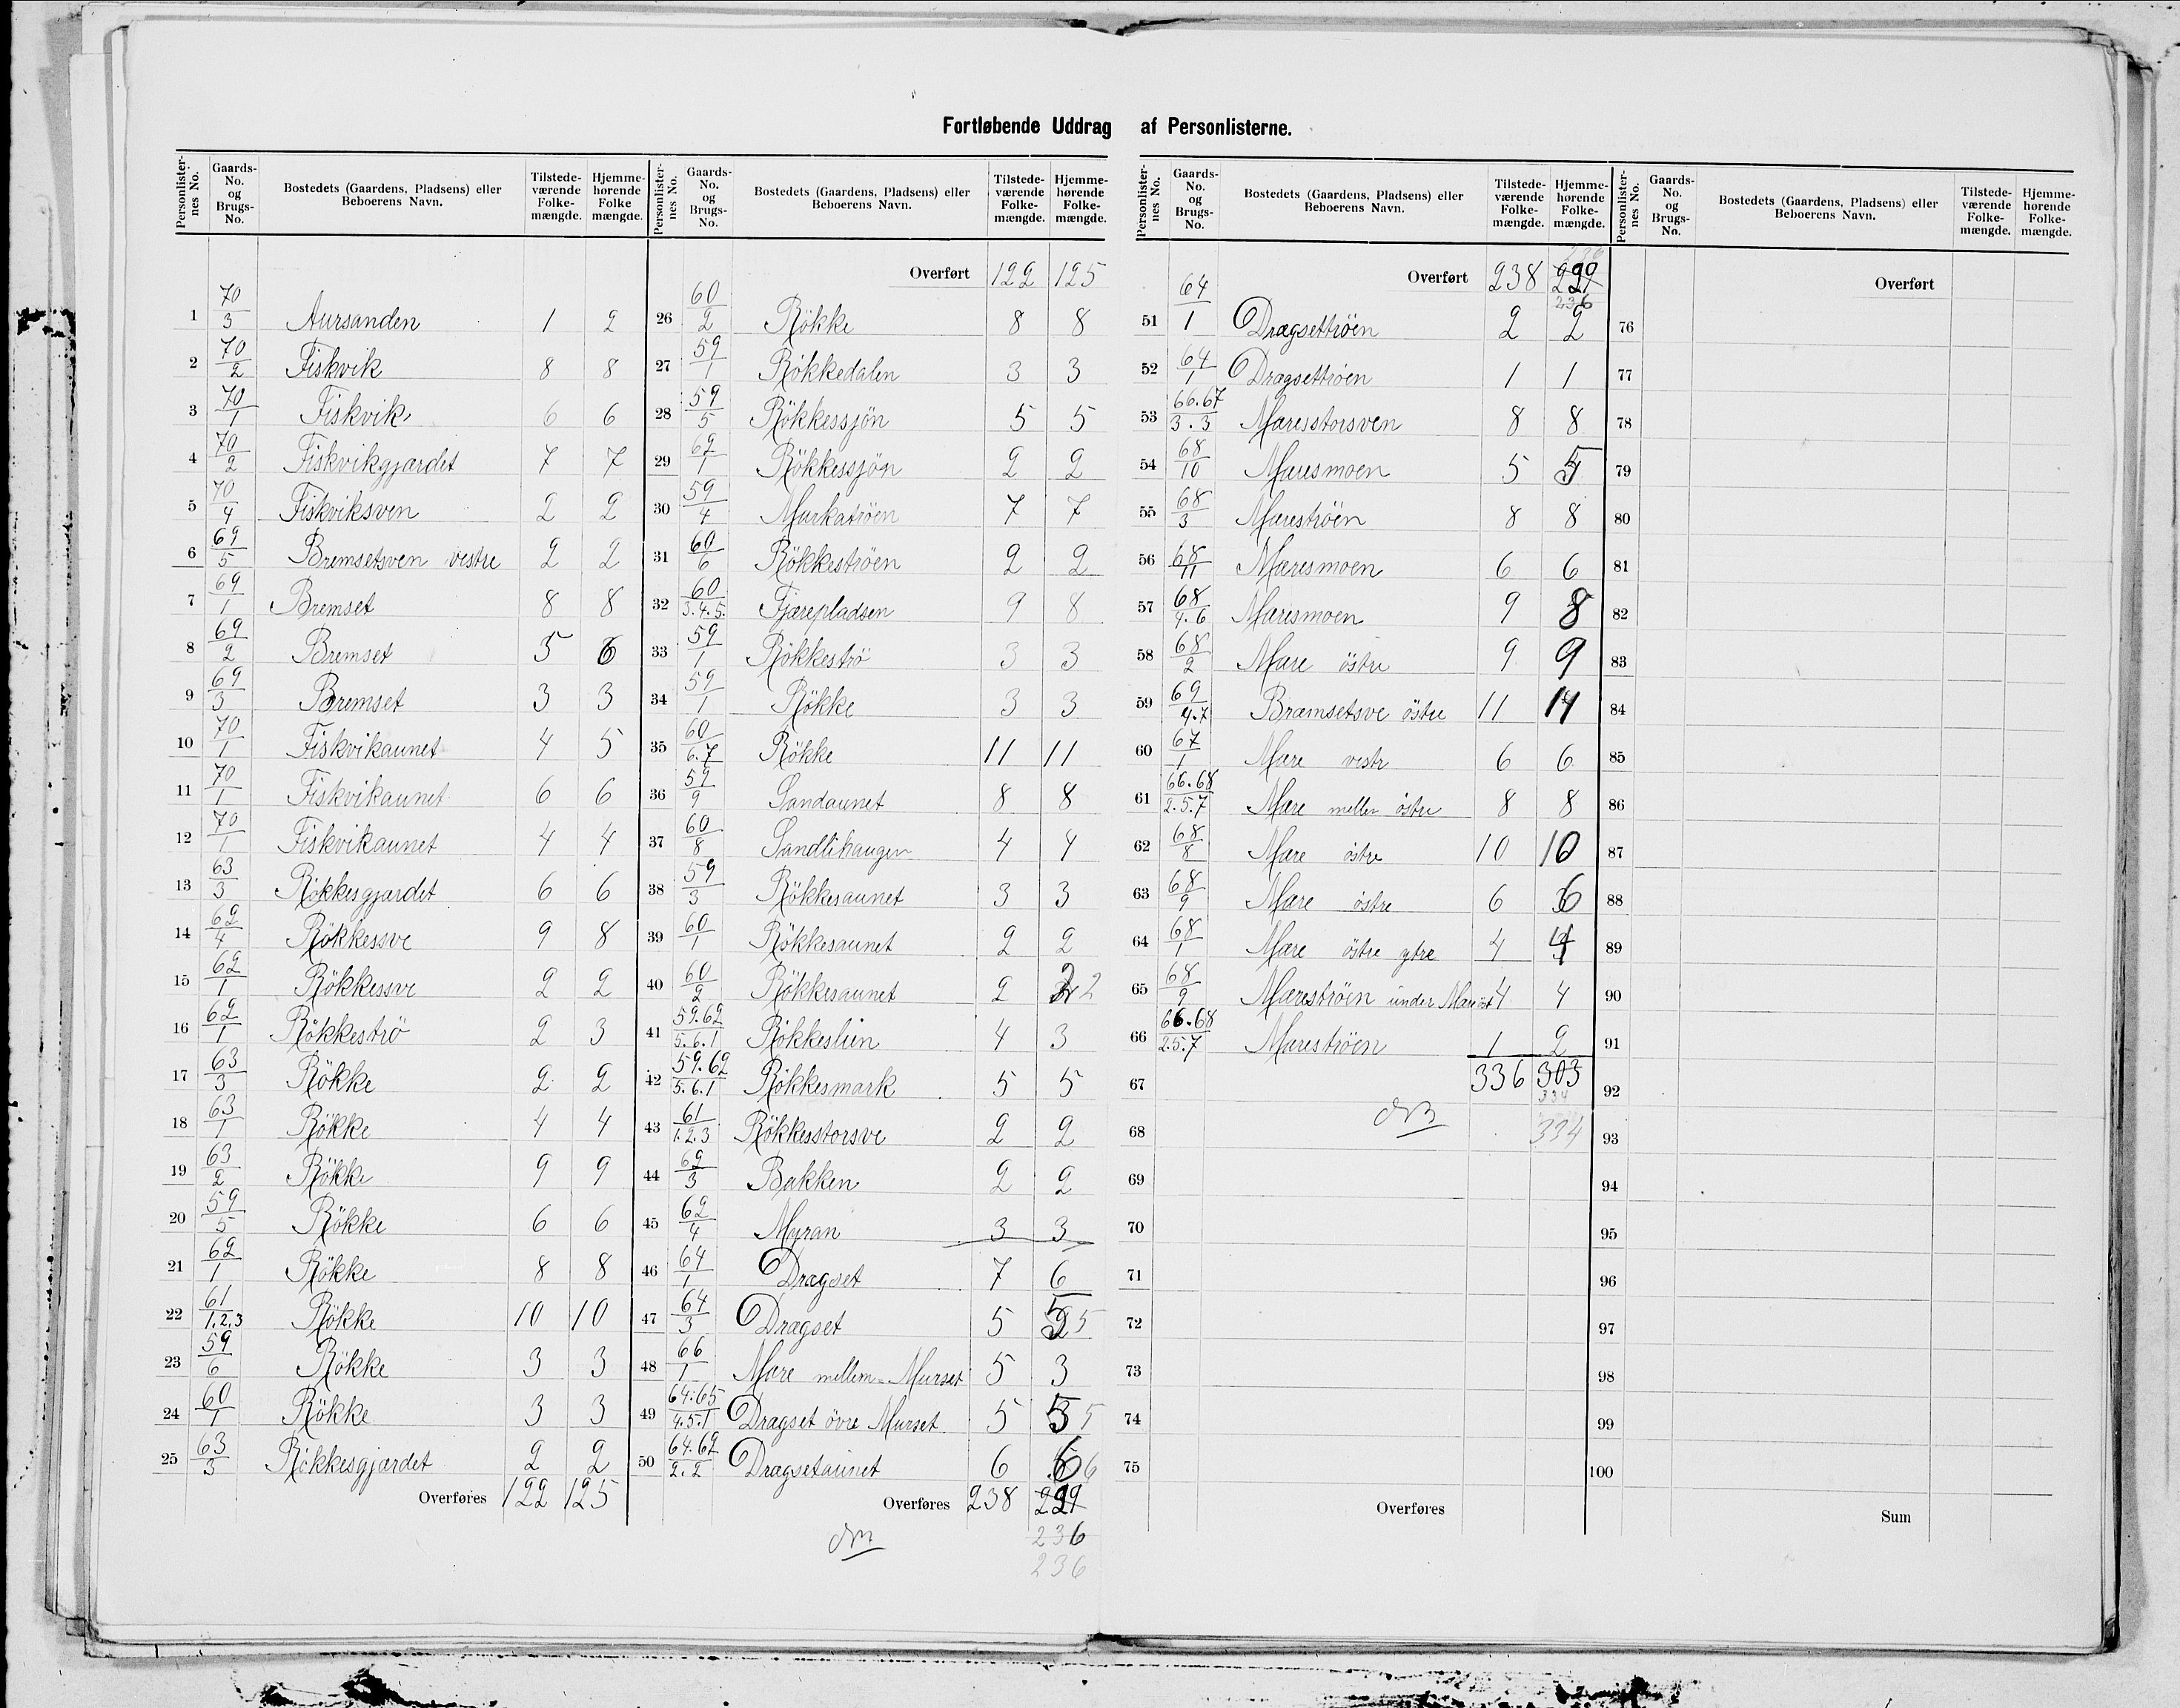 Fortløbende Uddrag af Personlisterne.
Personlister-nes No. Gaards-No. og Brugs-No. Bostedets (Gaardens, Pladsens) eller Beboerens Navn. Tilstede-værende Folke-mængde. Hjemme-hørende Folke mængde.
1 70/3 Aursanden 1 2
2 70/2 Fiskvik 8 8
3 70/1 Fiskvik 6 6
4 70/2 Fiskvikgjærdet 7 7
5 70/4 Fiskviksven 2 2
6 69/5 Bremsetsven vestre 2 2
7 69/1 Bremset 8 8
8 69/2 Bremset 5 6
9 69/3 Bremset 3 3
10 70/1 Fiskvikaunet 4 5
11 70/1 Fiskvikaunet 6 6
12 70/1 Fiskvikaunet 4 4
13 63/3 Rökkesgjærdet 6 6
14 62/4 Rökkessve 9 8
15 62/1 Rökkessve 2 2
16 62/1 Rökkeströ 2 3
17 63/3 Rökke 2 2
18 63/1 Rökke 4 4
19 63/2 Rökke 9 9
20 59/5 Rökke 6 6
21 62/1 Rökke 8 8
22 61/1.2.3 Rökke 10 10
23 59/6 Rökke 3 3
24 60/1 Rökke 3 3
25 63/3 Rökkesgjærdet 2 2
Overføres 122 125
Personlister-nes No. Gaards-No. og Brugs-No. Bostedets (Gaardens, Pladsens) eller Beboerens Navn. Tilstede-værende Folke-mængde. Hjemme-hørende Folke-mængde.
Overført 122 125
26 60/2 Rökke 8 8
27 59/1 Rökkedalen 3 3
28 59/5 Rökkessjön 5 5
29 62/1 Rökkessjön 2 2
30 59/4 Murkatröen 7 7
31 60/6 Rökkeströen 2 2
32 60/3.4.5. Fjærepladsen 9 8
33 59/1 Rökkeströ 3 3
34 59/1 Rökke 3 3
35 60/6.7 Rökke 11 11
36 59/9 Sandaunet 8 8
37 60/8 Sandlihaugen 4 4
38 59/3 Rökkesaunet 3 3
39 60/1 Rökkesaunet 2 2
40 60/2 Rökkesaunet 2 2 2
41 59.62/5.6.1 Rökkeslien 4 3
42 59.62/5.6.1 Rökkesmark 5 5
43 61/1.2.3 Rökkesstorsve 2 2
44 62/3 Bakken 2 2
45 62/4 Myran 3 3
46 64/1 Dragset 7 6
47 64/3 Dragset 5 5 5
48 66/1 Mære mellem-Murset 5 3
49 64.65/4.5.1 Dragset övre Murset 5 5 5
50 64.62/2.2 Dragsetaunet 6 6 6
Overføres 238 229
236
236
Personlister-nes No. Gaards-No. og Brugs-No. Bostedets (Gaardens, Pladsens) eller Beboerens Navn. Tilstede-værende Folke-mængde. Hjemme-hørende Folke-mængde.
Overført 238 229
236
51 64/1 Dragsettröen 2 2
52 64/1 Dragsettröen 1 1
53 66.67/3.3 Mæresstorsven 8 8
54 68/10 Mæresmoen 5 5
55 68/3 Mæreströen 8 8
56 68/11 Mæresmoen 6 6
57 68/4.6 Mæresmoen 9 8
58 68/2 Mære östre 9 9
59 69/4.7 Bramsetsve östre 11 11
60 67/1 Mære vestr 6 6
61 66.68/2.5.7 Mære mellem östre 8 8
62 68/8 Mære östre 10 10
63 68/9 Mære östre 6 6
64 68/1 Mære östre ytre 4 4
65 68/9 Mæreströen under Mære 4 4
66 66.68/2.5.7 Mæreströen 1 2
67 336 303
334
68 334
69
70
71
72
73
74
75
Overføres
Personlister-nes No. Gaards-No. og Brugs-No. Bostedets (Gaardens, Pladsens) eller Beboerens Navn. Tilstede-værende Folke-mængde. Hjemme-hørende Folke-mængde.
Overført
76
77
78
79
80
81
82
83
84
85
86
87
88
89
90
91
92
93
94
95
96
97
98
99
100
Sum